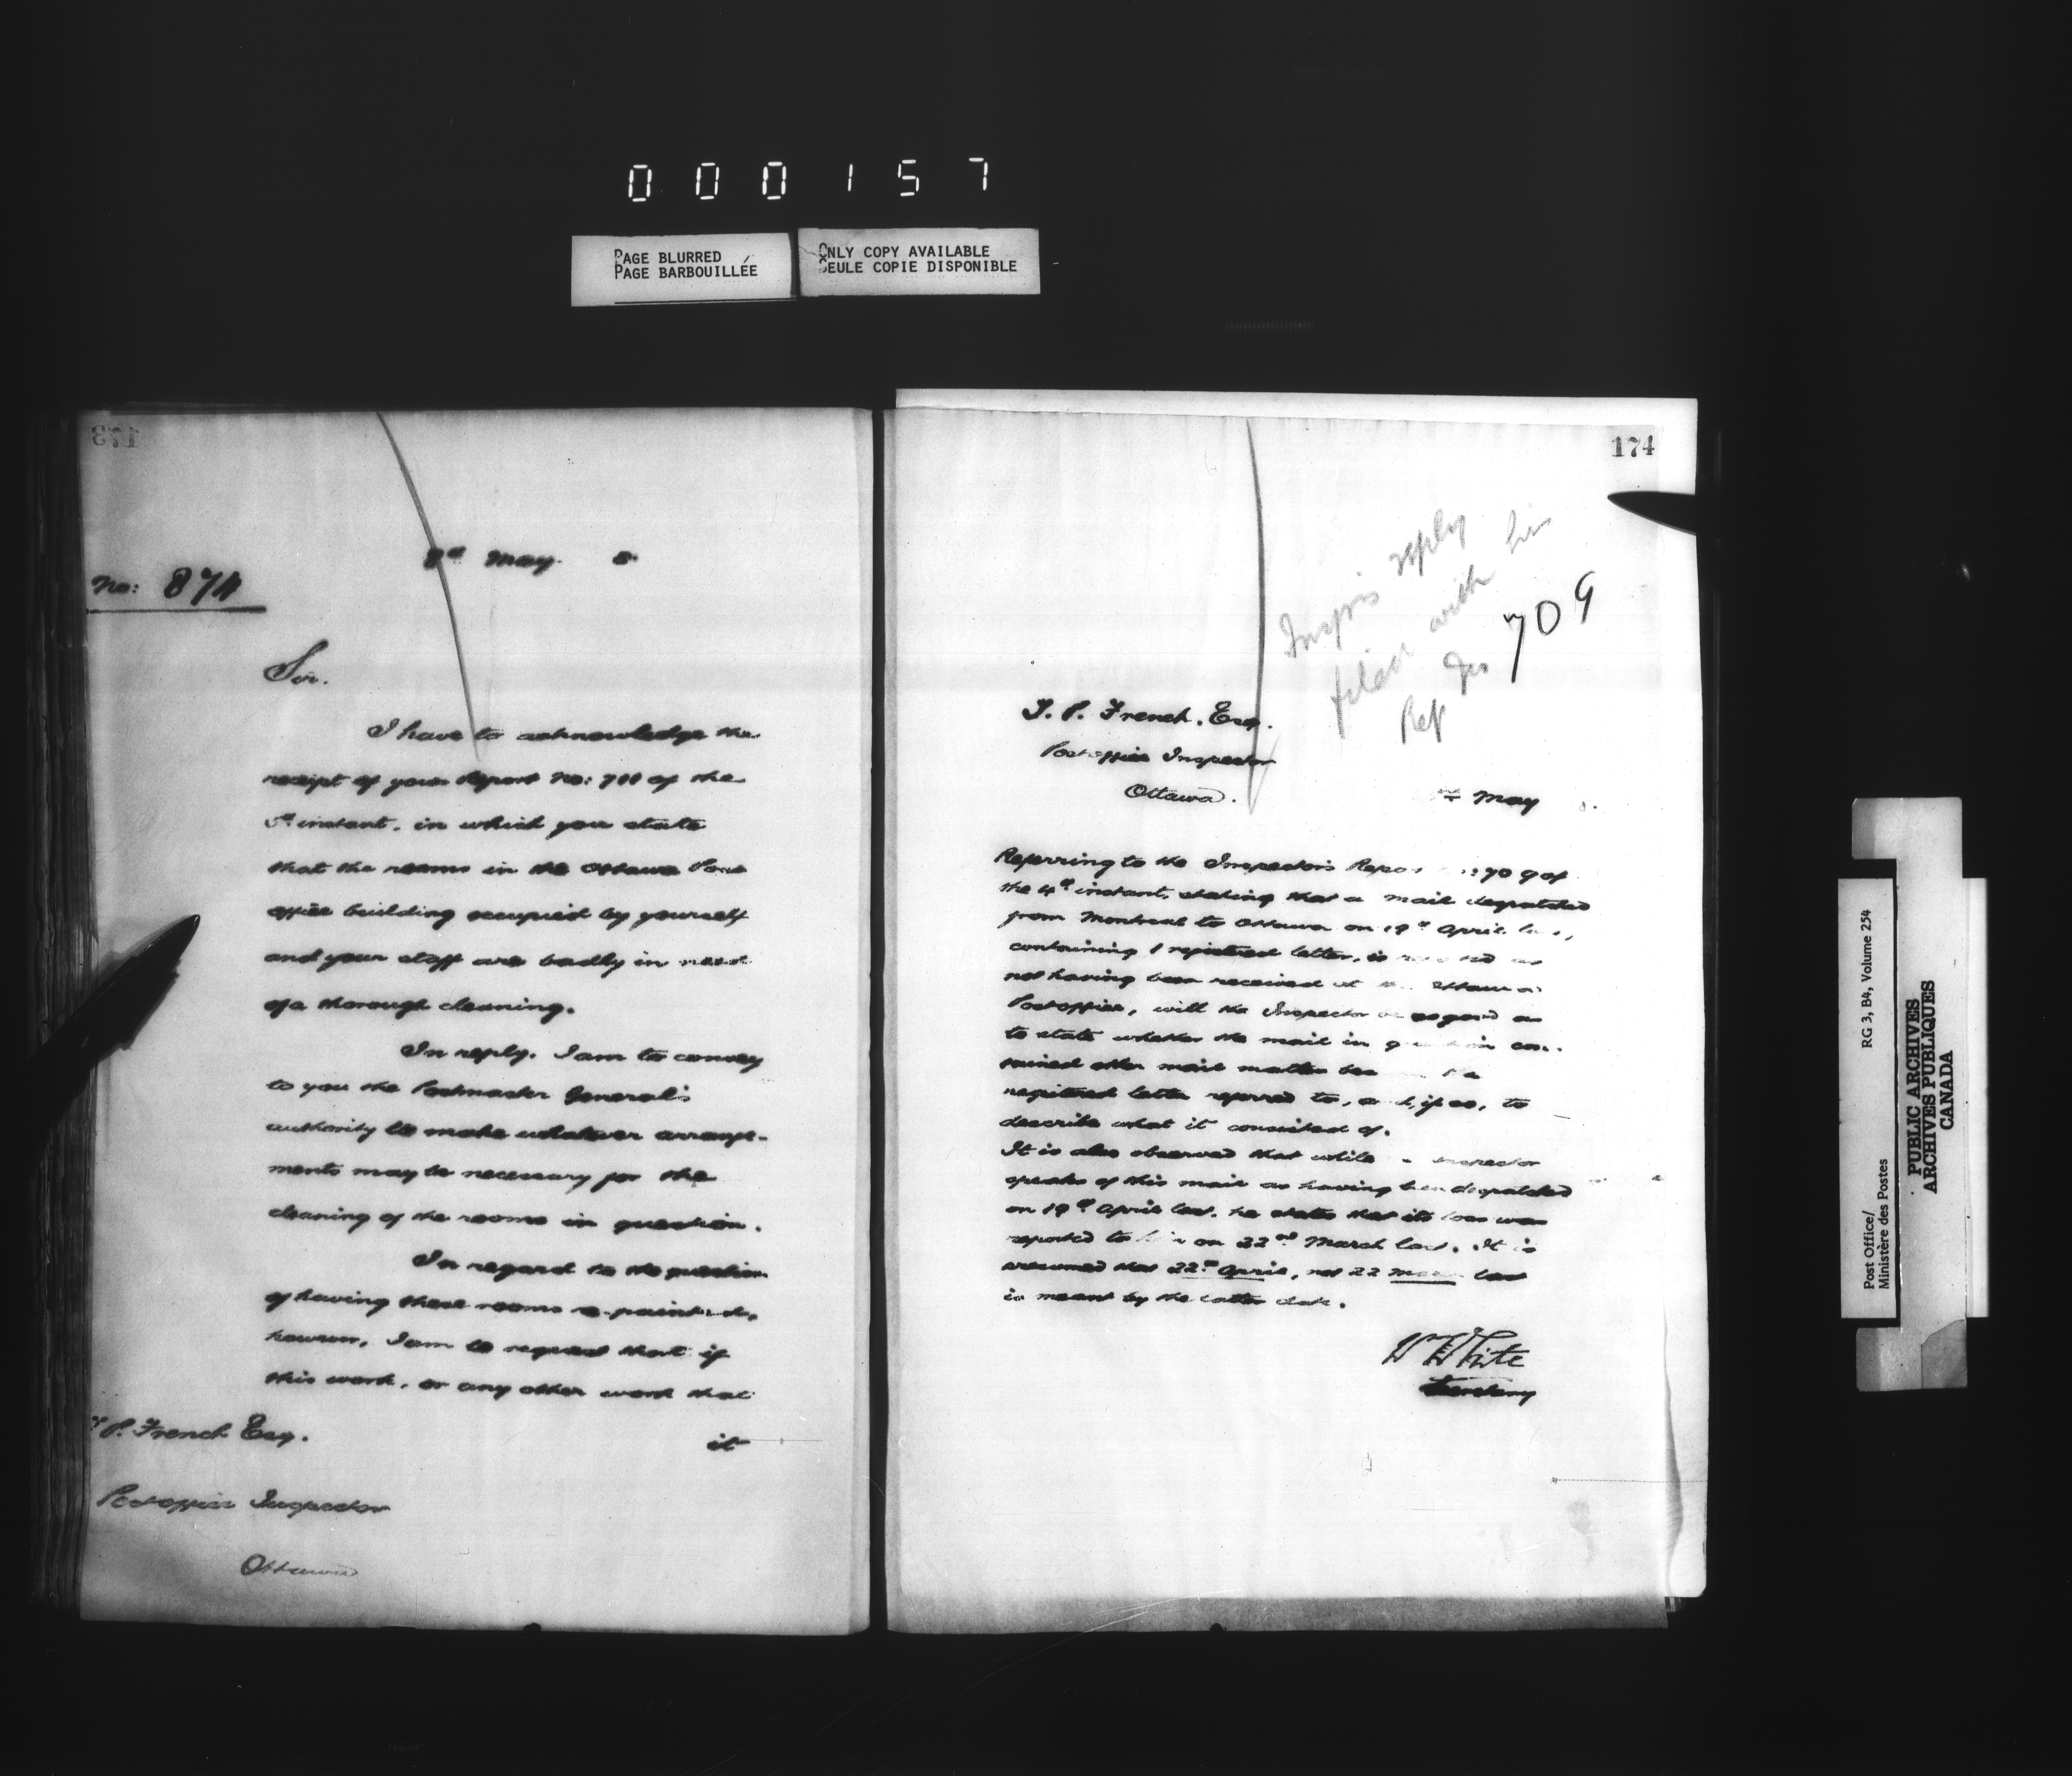 000157
PAGE BLURRED
PAGE BARBOUILLÉE
ONLY COPY AVAILABLE
SEULE COPIE DISPONIBLE
173
8th May. 8
No: 874
Sir.
I have to acknowledge the
receipt of your Report No: 711 of the
instant, in which you state
that the rooms in the Ottawa Post
office building occupied by yourself
and your staff are badly in need
of a thorough cleaning.
In reply, I am to convey
to you the Postmaster General's
authority to make whatever arrange-
ments may be necessary for the
cleaning of the rooms in question.
In regard to the question
of having these rooms re-painted,
however, I am to request that if
this work, or any other work that
it
T. P. French Esq.
Postoffice Inspector
Ottawa
174
Insprs reply
filed with his
Rep No 709
T. P. French, Esq.
Postoffice Inspector
Ottawa.
May 8.
Referring to the Inspector's Report 709 of
the 4th instant, stating that a mail despatched
from Montreal to Ottawa on 19th April last,
containing 1 registered letter, is as
not having been received at Ottawa
Postoffice, will the Inspector be so good as
to state whether the mail in question con-
tained other mail matter the
registered letter referred to, and, if so, to
describe what it consisted of.
It is also observed that while Inspector
speaks of this mail as having been despatched
on 19th April last, he states that its loss was
reported to him on 22nd March last. It is
presumed that 22nd April, not 22 March last
is meant by the latter date.
W White
Secretary
Post Office/
Ministère des Postes
RG 3, B4, Volume 254
PUBLIC ARCHIVES
ARCHIVES PUBLIQUES
CANADA